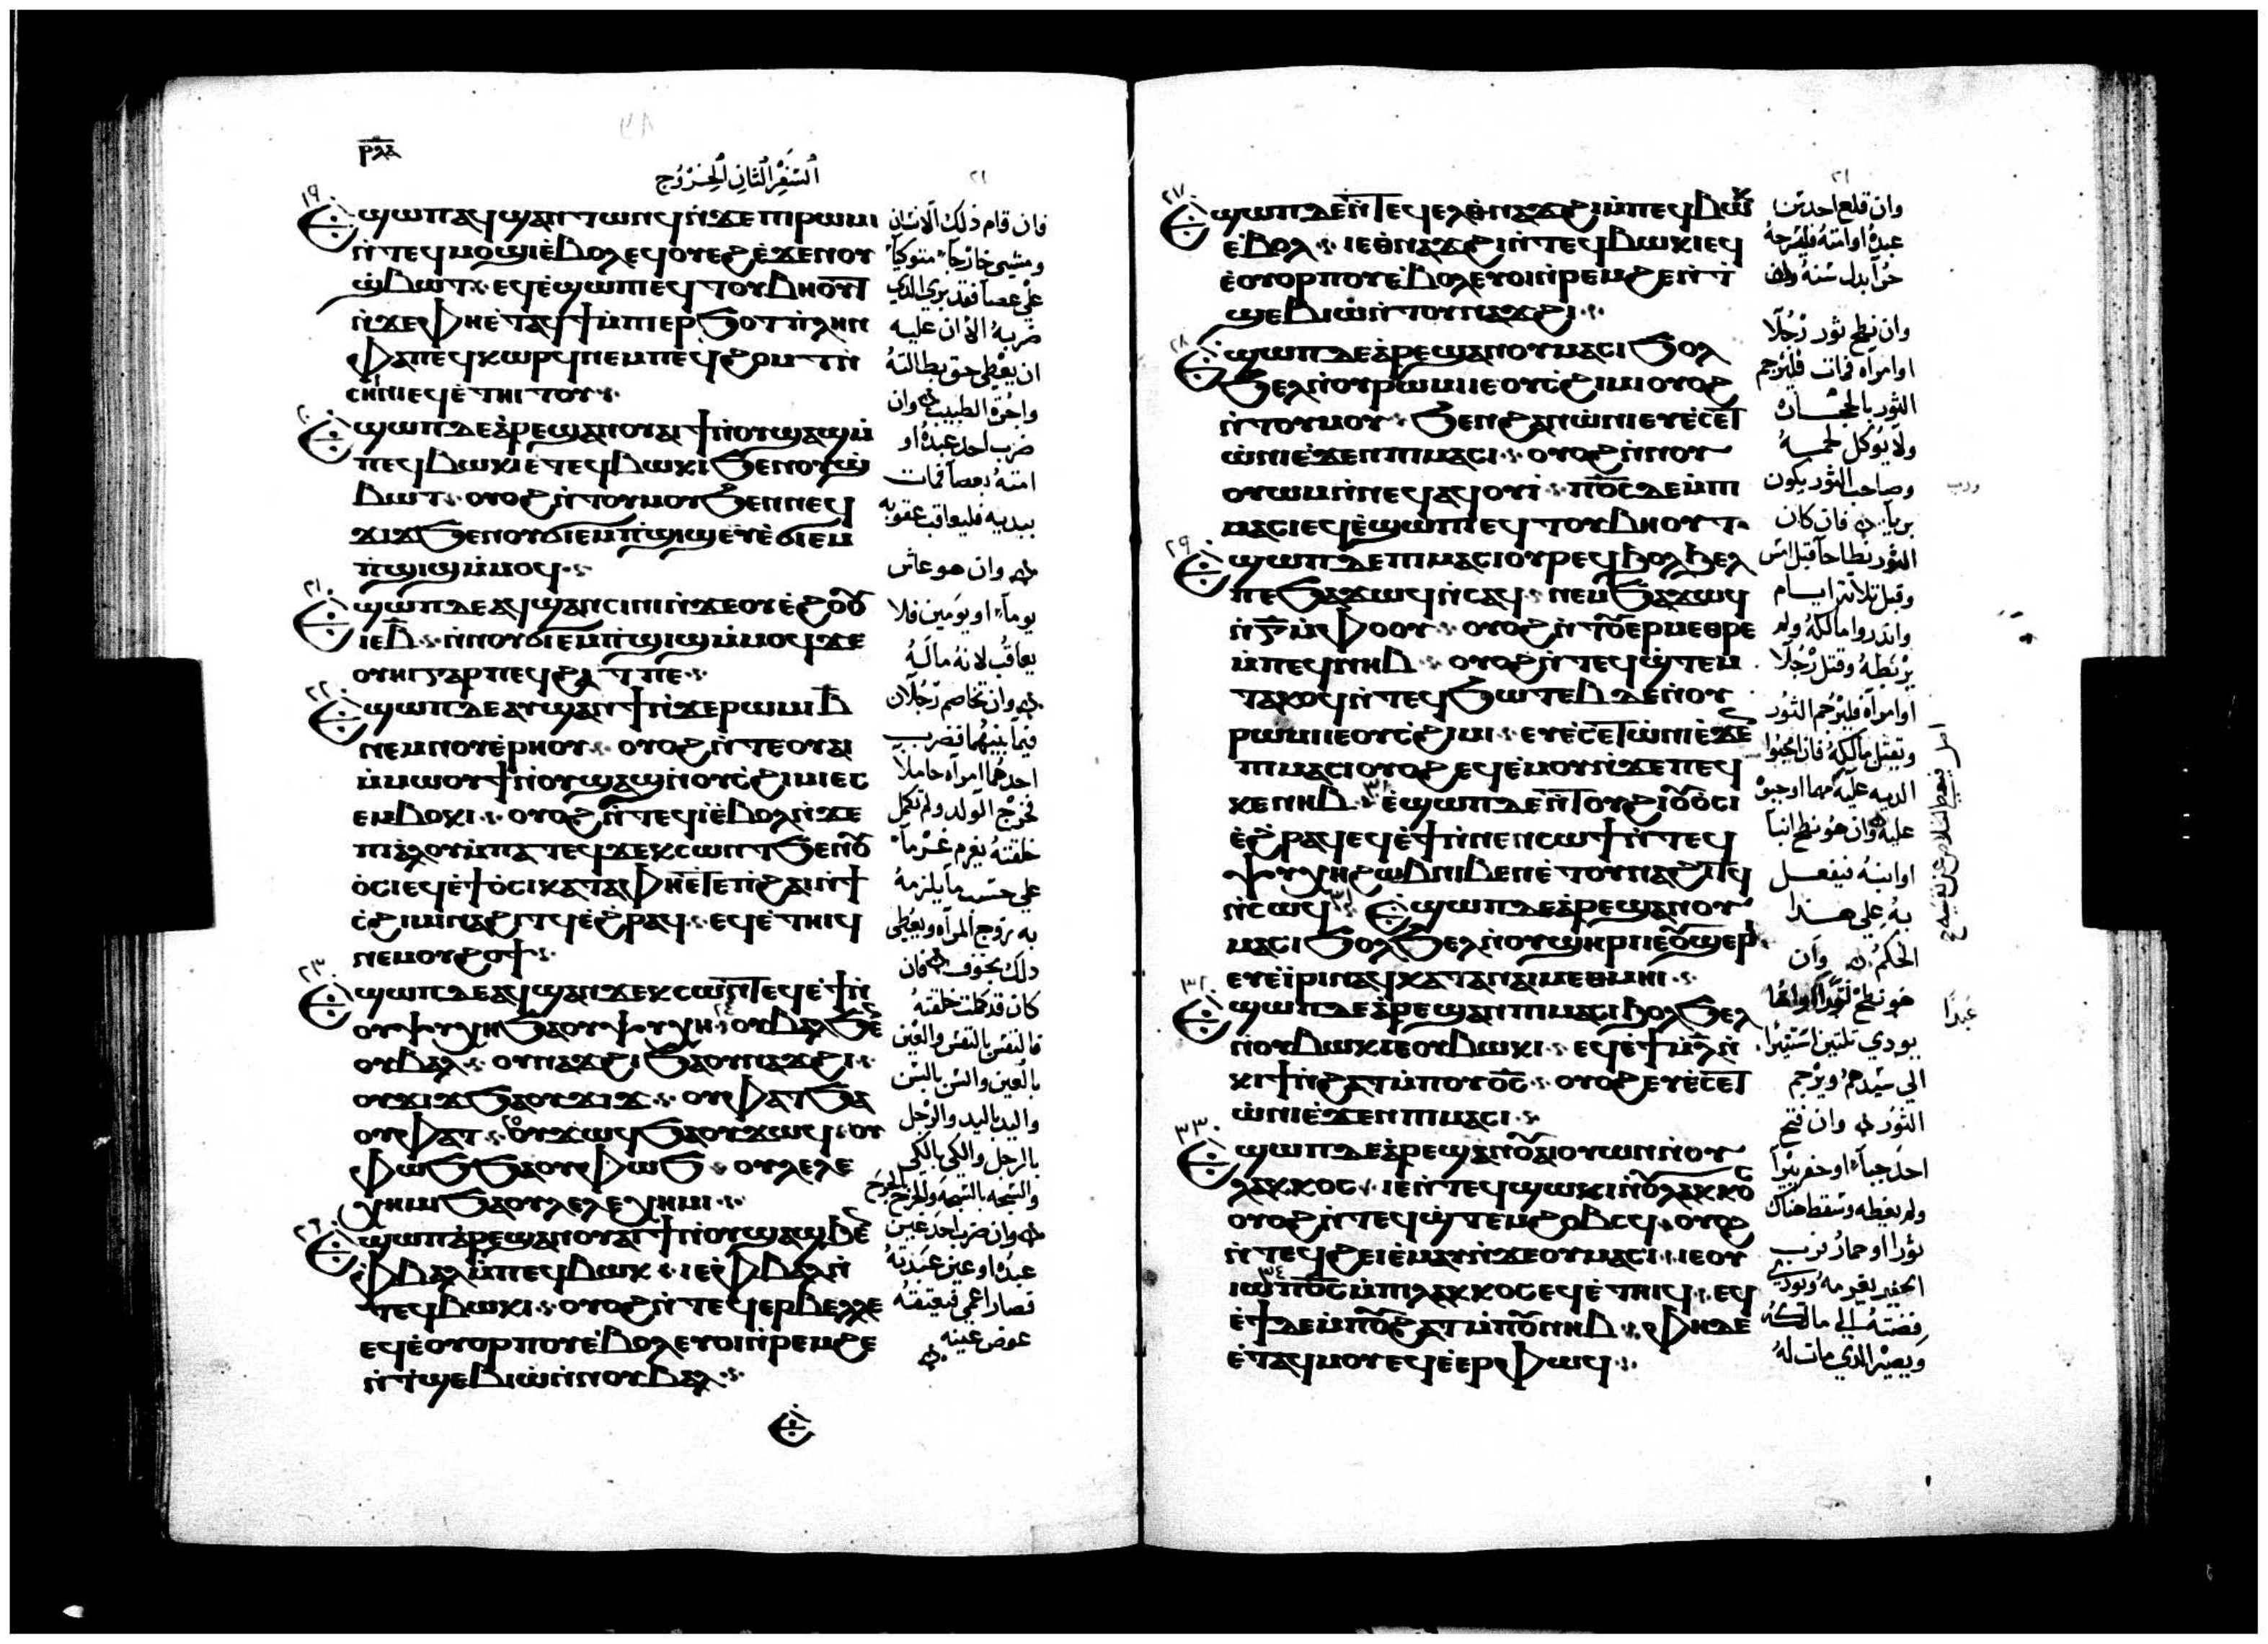 ⲣⲗⲇ
السفر الثانى الخروج
٢١
١٩
Ⲉϣⲱⲡ ⲁϥϣⲁⲛⲧⲱⲛϥ ⲛ̀ϫⲉ ⲡⲓⲣⲱⲙⲓ
ⲛ̀ⲧⲉϥⲙⲟϣⲓ ⲉ̀ⲃⲟⲗ ⲉϥⲟⲩⲉϩ ⲉ̀ϫⲉⲛ ⲟⲩ
ϣ̀ⲃⲱⲧ ⲉϥⲉ̀ϣⲱⲡⲓ ⲉϥⲧⲟⲩⲃⲏⲟⲩⲧ
ⲛ̀ϫⲉ ⲫⲏⲉ̀ⲧⲁϥϯ ⲙ̀ⲡⲓⲉⲣϧⲟⲧ ⲡⲗⲏⲛ
ⲫⲁ ⲡⲉϥⲕⲱⲣϥ ⲛⲉⲙ ⲡⲉϥϩⲟⲙⲧ ⲛ̀
ⲥⲏⲓⲛⲓ ⲉϥⲉ̀ⲧⲏⲓⲧⲟⲩ
٢٠
Ⲉϣⲱⲡ ⲇⲉ ⲁ̀ⲣⲉϣⲁⲛ ⲟⲩⲁⲓ ϯ ⲛ̀ⲟⲩϣⲁϣ ⲙ̀
ⲡⲉϥⲃⲱⲕ ⲓⲉ ⲧⲉϥⲃⲱⲕⲓ ϧⲉⲛ ⲟⲩϣ̀
ⲃⲱⲧ ⲟⲩⲟϩ ⲛ̀ⲧⲟⲩⲙⲟⲩ ϧⲉⲛ ⲛⲉϥ
ϫⲓϫ ϧⲉⲛ ⲟⲩϭⲓⲉⲙⲡ̀ϣⲓϣ ⲉⲩⲉ̀ϭⲓⲉⲙ
ⲡ̀ϣⲓϣ ⲙ̀ⲙⲟϥ
٢١
Ⲉϣⲱⲡ ⲇⲉ ⲁϥϣⲁⲛⲥⲓⲛⲓ ⲛ̀ϫⲉ ⲟⲩⲉ̀ϩⲟⲟⲩ
ⲓⲉ ⲃ̅ ⲛ̀ⲛⲟⲩϭⲓⲉⲙⲡ̀ϣⲓϣ ⲙ̀ⲙⲟϥ ϫⲉ
ⲟⲩⲏⲓ ⲅⲁⲣ ⲡⲉϥϩⲁⲧ ⲡⲉ
٢٢
Ⲉϣⲱⲡ ⲇⲉ ⲁⲩϣⲁⲛϯ ⲛ̀ϫⲉ ⲣⲱⲙⲓ ⲃ̅
ⲛⲉⲙ ⲛⲟⲩⲉ̀ⲣⲏⲟⲩ ⲟⲩⲟϩ ⲛ̀ⲧⲉ ⲟⲩⲁⲓ
ⲙ̀ⲙⲱⲟⲩ ϯ ⲛ̀ⲟⲩϣⲁϣ ⲛ̀ⲟⲩⲥ̀ϩⲓⲙⲓ ⲉⲥ
ⲉⲙⲃⲟⲕⲓ ⲟⲩⲟϩ ⲛ̀ⲧⲉϥⲓ̀ ⲉ̀ⲃⲟⲗ ⲛ̀ϫⲉ
ⲡⲓⲁ̀ⲗⲟⲩ ⲙ̀ⲡⲁⲧⲉϥϫⲉⲕⲥⲱⲛⲧ ϧⲉⲛ ⲟⲩ
ⲟ̀ⲥⲓ ⲉϥⲉ̀ϯⲟ̀ⲥⲓ ⲕⲁⲧⲁ ⲫⲏⲉⲧⲉ ⲡ̀ϩⲁⲓ ⲛ̀ϯ
ⲥ̀ϩⲓⲙⲓ ⲛⲁϩⲓⲧϥ ⲉ̀ϩ̀ⲣⲁϥ ⲉϥⲉ̀ⲧⲏⲓϥ
ⲛⲉⲙ ⲟⲩϩⲟϯ
٢٣
Ⲉϣⲱⲡ ⲇⲉ ⲁϥϣⲁⲛϫⲉⲕⲥⲱⲛⲧ ⲉϥⲉ̀ϯ ⲛ̀
ⲟⲩⲯⲩⲭⲏ ϧⲁ ⲟⲩⲯⲩⲭⲏ ٢٤ ⲟⲩⲃⲁⲗ ϧⲁ
ⲟⲩⲃⲁⲗ ⲟⲩⲛⲁϫϩⲓ ϧⲁ ⲟⲩⲛⲁϫϩⲓ
ⲟⲩϫⲓϫ ϧⲁ ⲟⲩϫⲓϫ ⲟⲩⲫⲁⲧ ϧⲁ
ⲟⲩⲫⲁⲧ ٢٥ ⲟⲩϫⲱϥ ϧⲁ ⲟⲩϫⲱϥ ⲟⲩ
ⲫⲱϧ ϧⲁ ⲟⲩⲫⲱϧ ⲟⲩⲗⲉⲗⲉ
ⲭⲏⲙⲓ ϧⲁ ⲟⲩⲗⲉⲗⲉⲭⲏⲙⲓ
٢٦
Ⲉϣⲱⲡ ⲁ̀ⲣⲉϣⲁⲛ ⲟⲩⲁⲓ ϯ ⲛ̀ⲟⲩϣⲁϣ ϧⲉⲛ
ⲫ̀ⲃⲁⲗ ⲙ̀ⲡⲉϥⲃⲱⲕ ⲓⲉ ⲫ̀ⲃⲁⲗ ⲛ̀
ⲧⲉϥⲃⲱⲕⲓ ⲟⲩⲟϩ ⲛ̀ⲧⲉϥⲉⲣⲃⲉⲗⲗⲉ
ⲉϥⲉ̀ⲟⲩⲟⲣⲡⲟⲩ ⲉ̀ⲃⲟⲗ ⲉⲩⲟⲓ ⲛ̀ⲣⲉⲙϩⲉ
ⲛ̀ⲧ̀ϣⲉⲃⲓⲱ̀ ⲛ̀ⲛⲟⲩⲃⲁⲗ
فان قام ذلك الانسان
ومشى خارجاً متوكياً
على عصا فقد بري الذي
ضربه الا ان عليه
ان يعطى حق بطالته
واجرة الطبيب وان
ضرب احد عبده او
امته بعصا فمات
بيديه فليعاقب عقوبه
وان هو عاش
يوماً او يومين فلا
يعاقب لانه ماله
وان تخاصم رجلان
فيما بينهما فضرب
احدهما امراه حاملا
فخرج الولد ولم تكمل
خلقته يغرم غرماً
على حسب ما يلزمه
به زوج المراه ويعطى
ذلك بخوف فان
كان قد كملت خلقته
فالنفس بالنفس والعين
بالعين والسن بالسن
واليد باليد والرجل
بالرجل والكى بالكى
والشجه بالشجه والجرح بالجرح
وان ضرب احد عين
عبده او عين عبدته
فصار اعمى فيعتقه
عوض عينه
٢١
٢٧
Ⲉϣⲱⲡ ⲇⲉ ⲛ̀ⲧⲉϥⲉⲗ ⲑ̀ⲛⲁϫϩⲓ ⲙ̀ⲡⲉϥⲃⲱⲕ
ⲉ̀ⲃⲟⲗ ⲓⲉ ⲑ̀ⲛⲁϫϩⲓ ⲛ̀ⲧⲉϥⲃⲱⲕⲓ ⲉϥ
ⲉ̀ⲟⲩⲟⲣⲡⲟⲩ ⲉ̀ⲃⲟⲗ ⲉⲩⲟⲓ ⲛ̀ⲣⲉⲙϩⲉ ⲛ̀ⲧ̀
ϣⲉⲃⲓⲱ̀ ⲛ̀ⲧⲟⲩⲛⲁϫϩⲓ
٢٨
Ⲉϣⲱⲡ ⲇⲉ ⲁ̀ⲣⲉϣⲁⲛ ⲟⲩⲙⲁⲥⲓ ϧⲟⲗ
ϧⲉⲗ ⲛ̀ⲟⲩⲣⲱⲙⲓ ⲓⲉ ⲟⲩⲥ̀ϩⲓⲙⲓ ⲟⲩⲟϩ
ⲛ̀ⲧⲟⲩⲙⲟⲩ ϧⲉⲛ ϩⲁⲛⲱ̀ⲛⲓ ⲉⲩⲉ̀ⲥⲉⲧ
ⲱ̀ⲛⲓ ⲉ̀ϫⲉⲛ ⲡⲓⲙⲁⲥⲓ ⲟⲩⲟϩ ⲛ̀ⲛⲟⲩ
ⲟⲩⲱⲙ ⲛ̀ⲛⲉϥⲁϥⲟⲩⲓ̀ ⲡϭⲟⲓⲥ ⲇⲉ ⲙ̀ⲡⲓ
ⲙⲁⲥⲓ ⲉϥⲉ̀ϣⲱⲡⲓ ⲉϥⲧⲟⲩⲃⲏⲟⲩⲧ
٢٩
Ⲉϣⲱⲡ ⲇⲉ ⲡⲓⲙⲁⲥⲓ ⲟⲩⲣⲉϥϧⲟⲗϧⲉⲗ
ⲡⲉ ϧⲁϫⲱϥ ⲛ̀ⲥⲁϥ ⲛⲉⲙ ϧⲁϫⲱϥ
ⲛ̀ⲅ̅ ⲙ̀ⲫⲟⲟⲩ ⲟⲩⲟϩ ⲛ̀ⲧⲟⲩⲉⲣⲙⲉⲑⲣⲉ
ⲙ̀ⲡⲉϥⲛⲏⲃ ⲟⲩⲟϩ ⲛ̀ⲧⲉϥϣ̀ⲧⲉⲙ
ⲧⲁⲕⲟϥ ⲛ̀ⲧⲉϥϧⲱⲧⲉⲃ ⲇⲉ ⲛ̀ⲟⲩ
ⲣⲱⲙⲓ ⲓⲉ ⲟⲩⲥ̀ϩⲓⲙⲓ ⲉⲩⲉ̀ⲥⲉⲧ ⲱ̀ⲛⲓ ⲉ̀ϫⲉⲛ
ⲡⲓⲙⲁⲥⲓ ⲟⲩⲟϩ ⲉϥⲉ̀ⲙⲟⲩ ⲛ̀ϫⲉ ⲡⲉϥ
ⲕⲉⲛⲏⲃ ٣٠ ⲉ̀ϣⲱⲡ ⲇⲉ ⲛ̀ⲧⲟⲩϩⲓⲟⲩⲟ̀ⲥⲓ
ⲉ̀ϩ̀ⲣⲁϥ ⲉϥⲉ̀ϯ ⲛ̀ⲛⲉⲛⲥⲱϯ ⲛ̀ⲧⲉϥ
ⲯⲩⲭⲏ ϩⲱⲃ ⲛⲓⲃⲉⲛ ⲉ̀ⲧⲟⲩⲛⲁϩⲓⲧϥ
ⲛ̀ⲥⲱϥ ٣١ Ⲉϣⲱⲡ ⲇⲉ ⲁ̀ⲣⲉϣⲁⲛ ⲟⲩ
ⲙⲁⲥⲓ ϧⲟⲗϧⲉⲗ ⲛ̀ⲟⲩϣⲏⲣⲓ ⲓⲉ ⲟⲩϣⲉⲣⲓ
ⲉⲩⲉ̀ⲓ̀ⲣⲓ ⲛⲁϥ ⲕⲁⲧⲁ ⲡⲁⲓⲙⲉⲑⲙⲏⲓ
٣٢
Ⲉϣⲱⲡ ⲇⲉ ⲁ̀ⲣⲉϣⲁⲛ ⲡⲓⲙⲁⲥⲓ ϧⲟⲗϧⲉⲗ
ⲛ̀ⲟⲩⲃⲱⲕ ⲓⲉ ⲟⲩⲃⲱⲕⲓ ⲉϥⲉ̀ϯ ⲙ̀ⲗ̅ ⲛ̀
ⲕⲓϯ ⲛ̀ϩⲁⲧ ⲙ̀ⲡⲟⲩϭⲟⲓⲥ ⲟⲩⲟϩ ⲉⲩⲉ̀ⲥⲉⲧ
ⲱ̀ⲛⲓ ⲉ̀ϫⲉⲛ ⲡⲓⲙⲁⲥⲓ
٣٣
Ⲉϣⲱⲡ ⲇⲉ ⲁ̀ⲣⲉϣⲁⲛ ⲟⲩⲁⲓ ⲟⲩⲱⲛ ⲛ̀ⲟⲩ
ⲗⲁⲕⲕⲟⲥ ⲓⲉ ⲛ̀ⲧⲉϥϣⲱⲕⲓ ⲛ̀ⲟⲩⲗⲁⲕⲕⲟⲥ
ⲟⲩⲟϩ ⲛ̀ⲧⲉϥϣ̀ⲧⲉⲙϩⲟⲃⲥϥ ⲟⲩⲟϩ
ⲛ̀ⲧⲉϥϩⲉⲓ ⲉ̀ⲙⲁⲩ ⲛ̀ϫⲉ ⲟⲩⲙⲁⲥⲓ ⲓⲉ ⲟⲩ
ⲓⲱ ٣٤ ⲡϭⲟⲓⲥ ⲙ̀ⲡⲓⲗⲁⲕⲕⲟⲥ ⲉϥⲉ̀ⲧⲏⲓϥ ⲉϥ
ⲉ̀ϯ ⲇⲉ ⲙ̀ⲡⲟⲩϩⲁⲧ ⲙ̀ⲡⲟⲩⲛⲏⲃ ⲫⲏ ⲇⲉ
ⲉ̀ⲧⲁϥⲙⲟⲩ ⲉϥⲉ̀ⲉⲣ ⲫⲱϥ
وان قلع احد سن
عبده او امته فليسرحه
حراً بدل سنه
وان نطح ثور رجلا
او امراه فمات فليرجم
الثور بالحجاره
ولا يوكل لحمه
وصاحب الثور يكون
برياً فان كان
الثور نطاحاً قبل امس
وقبل ثلاثة ايام
وانذروا مالكه ولم
يربطه وقتل رجلا
او امراه فليرجم الثور
ويقتل مالكه فان اوجبوا
الديه عليه مهما اوجبوا
عليه وان هو نطح ابناً
او ابنه فيفعل
به على هذا
الحكم وان
هو نطح
يودي ثلثين استيراً
الى سيدهم ويرجم
الثور وان فتح
احد جباً او حفر بيراً
ولم يغطه وسقط هناك
ثور او حمار فرب
الحفير يغرمه ويودي
فضته الى مالكه
ويصير الذي مات له
عبداً